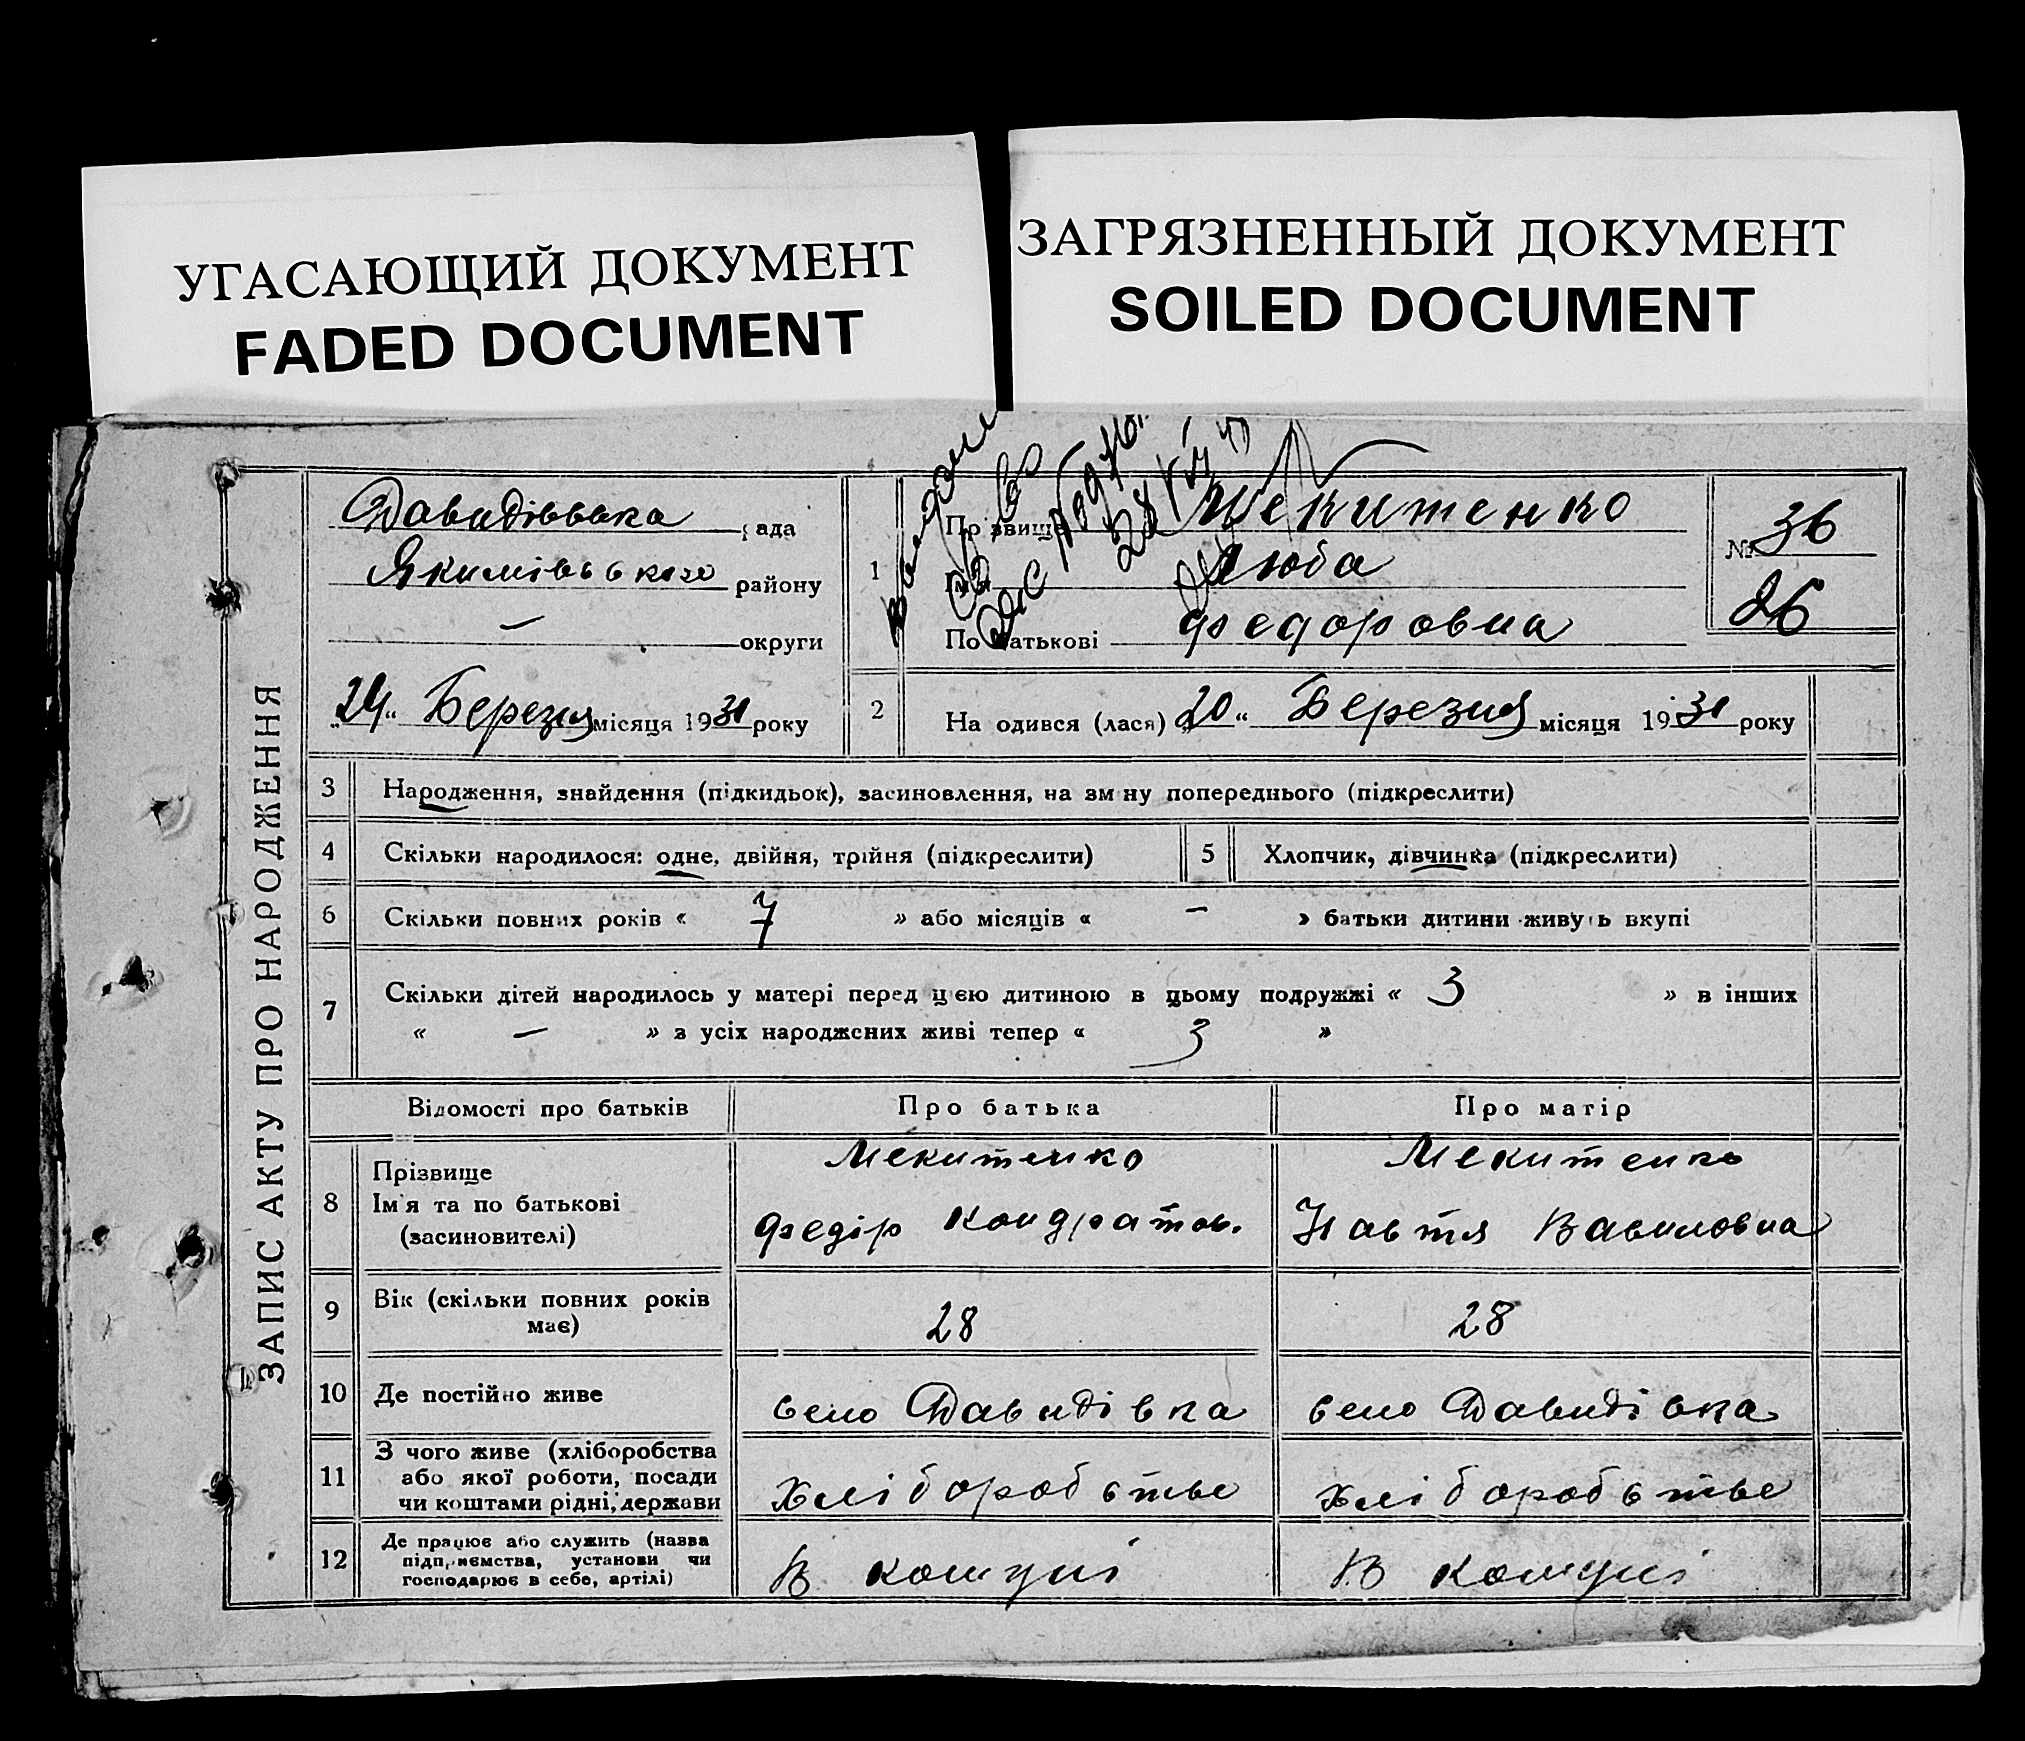 УГАСАЮЩИЙ ДОКУМЕНТ
FADED DOCUMENT
ЗАГРЯЗНЕННЫЙ ДОКУМЕНТ
SOILED DOCUMENT
ЗАПИС АКТУ ПРО НАРОДЖЕННЯ
Давидівська рада
Якимівського району
— округи
„24“ Березня місяця 1931 року
1
Прізвище Мекитенко
Ім'я Люба
По батькові Федоровна
№ 36
26
2 Народився (лася) „20“ Березня місяця 1931 року
3 Народження, знайдення (підкидьок), засиновлення, на зміну попереднього (підкреслити)
4 Скільки народилося: одне, двійня, трійня (підкреслити)
5 Хлопчик, дівчинка (підкреслити)
6 Скільки повних років « 7 » або місяців « — » батьки дитини живуть вкупі
7 Скільки дітей народилось у матері перед цією дитиною в цьому подружжі « 3 » в інших
« — » з усіх народжених живі тепер « 3 »
Відомості про батьків Про батька Про матір
8 Прізвище Мекитенко Мекитенко
Ім'я та по батькові Федір Кондратов. Настя Вавиловна
(засиновителі)
9 Вік (скільки повних років має) 28 28
10 Де постійно живе село Давидівка село Давидівка
11 З чого живе (хліборобства
або якої роботи, посади
чи коштами рідні, держави хліборобстве хліборобстве
12 Де працює або служить (назва
підприємства, установи чи
господарює в себе, артілі) В комуні В комуні